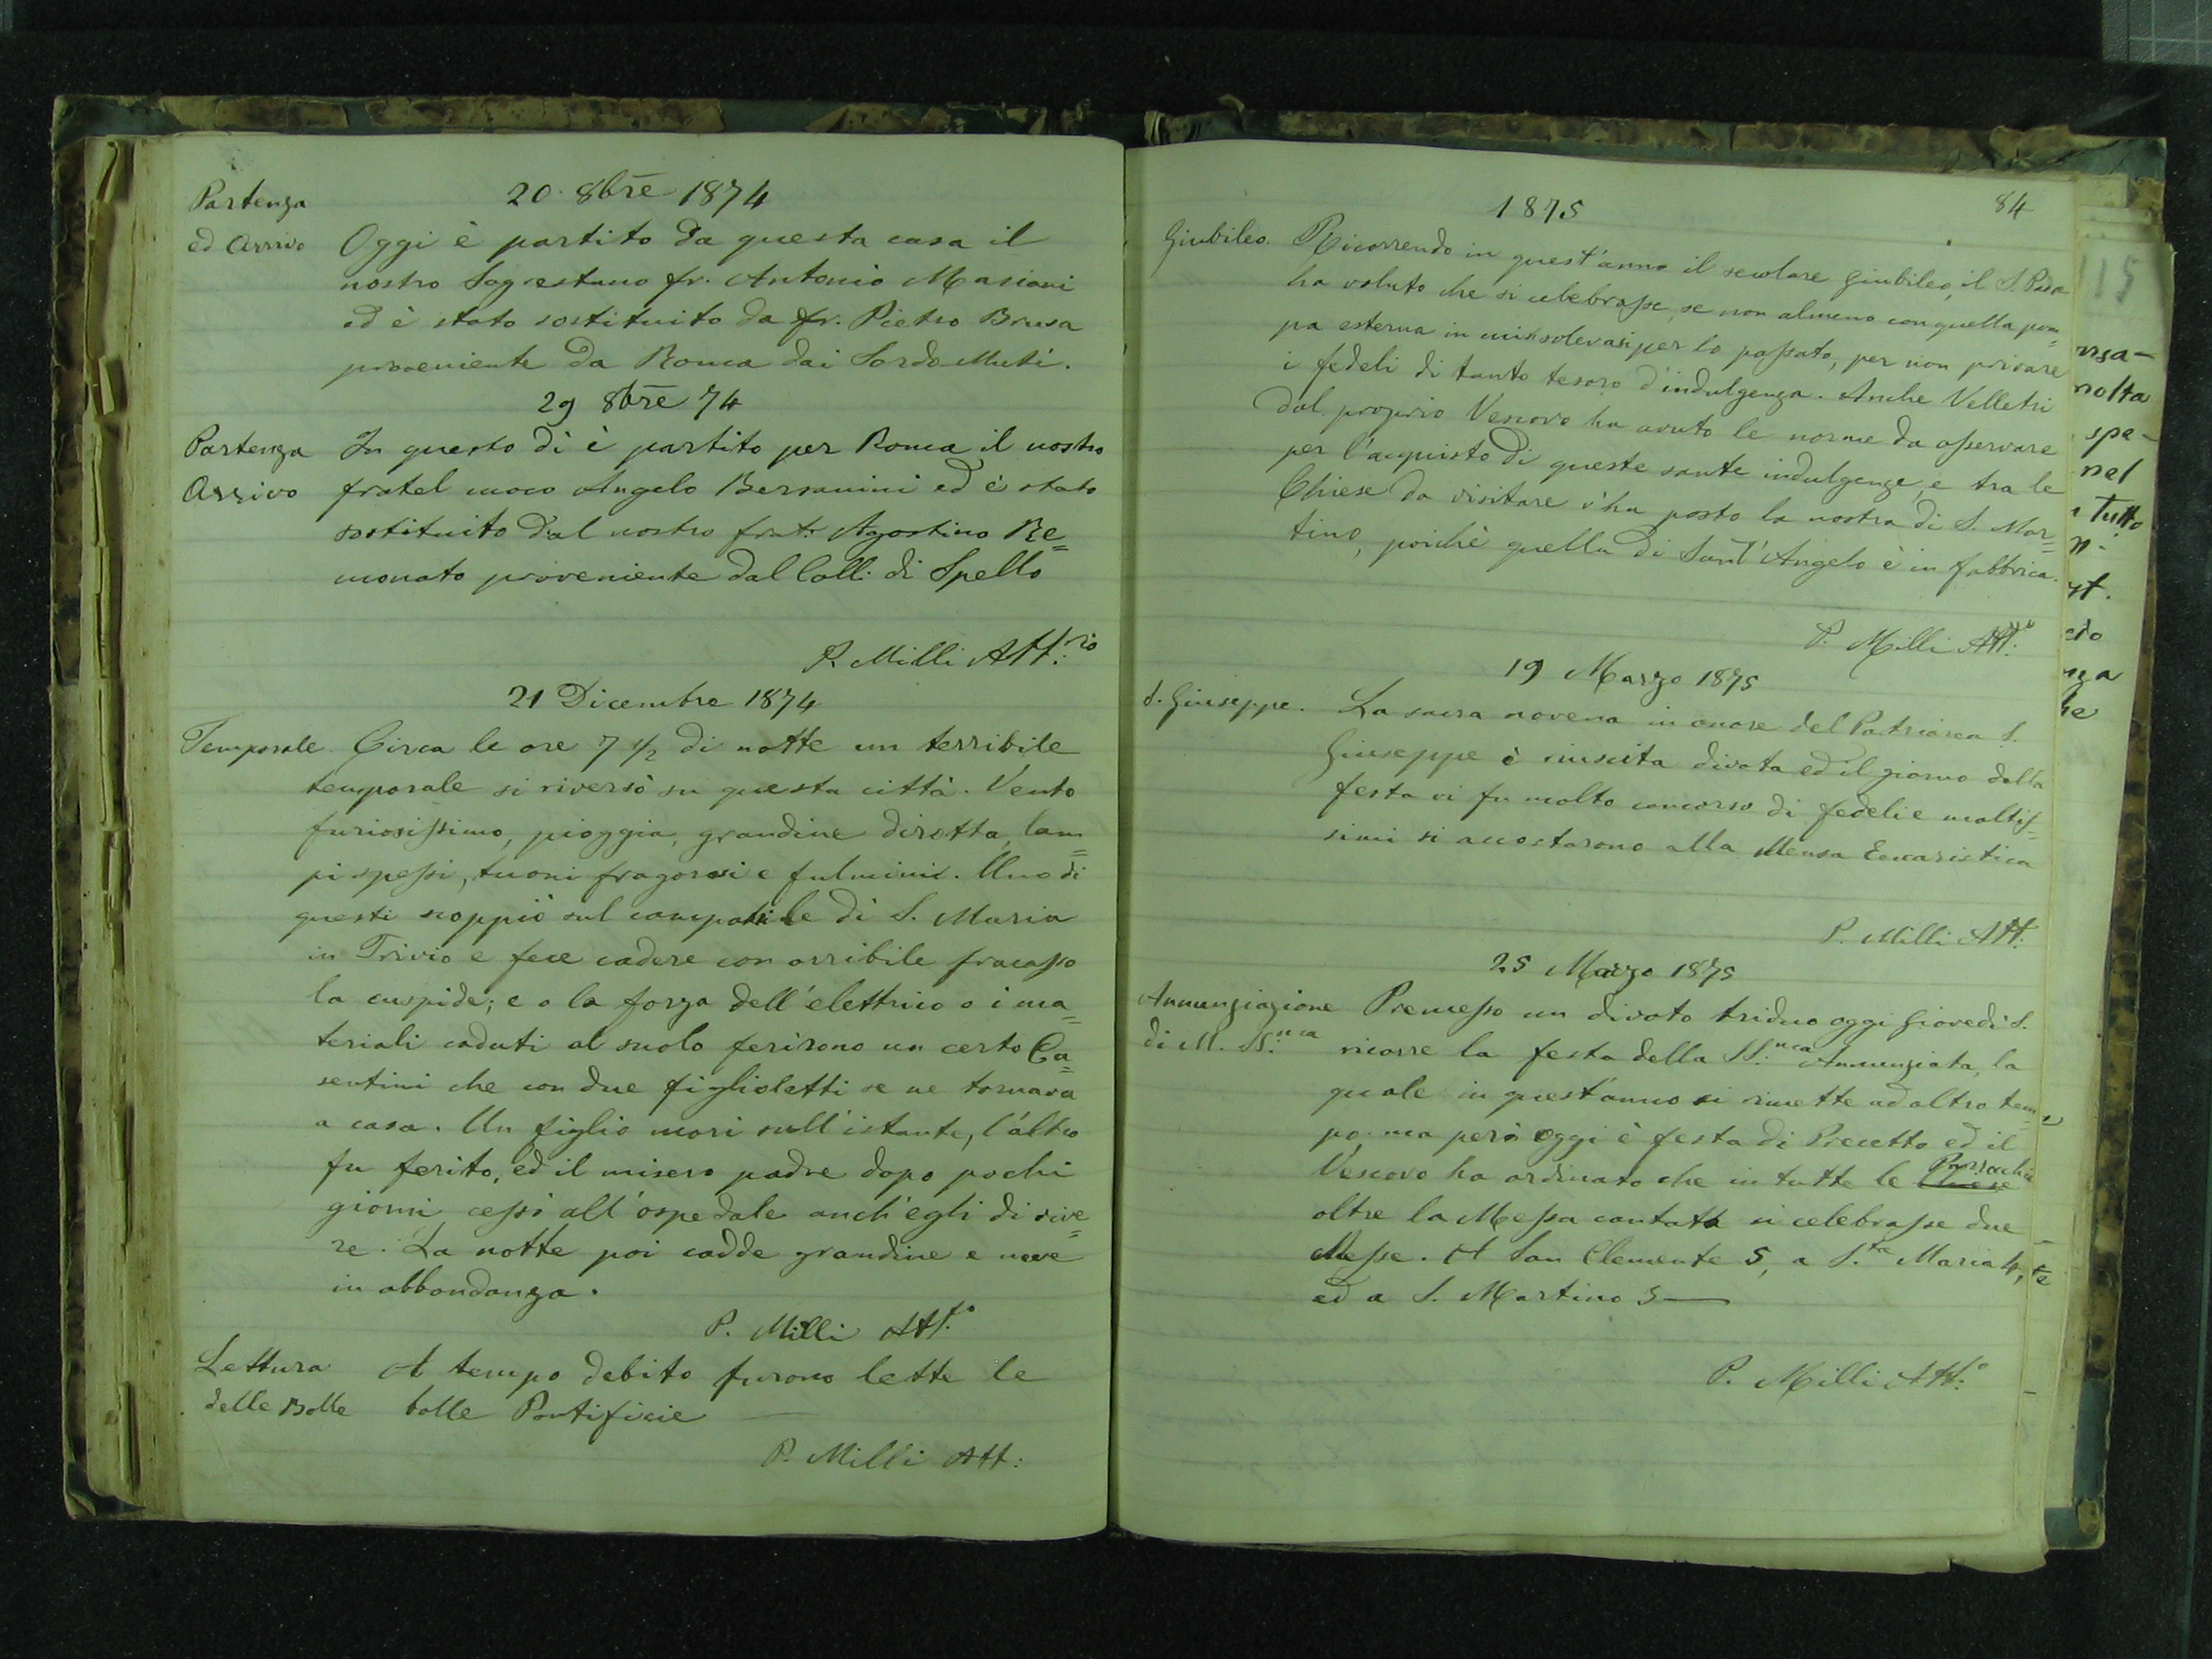 20 8bre 1874
Partenza
ed Arrivo
Oggi è partito da questa casa il
nostro Sagrestano fr. Antonio Masiani
ed è stato sostituito da fr. Pietro Brusa
proveniente da Roma dai Sordo-Muti.
29 8bre 74
Partenza
Arrivo
In questo dì è partito per Roma il nostro
fratel cuoco Angelo Bersanini ed è stato
sostituito dal nostro frat: Agostino Re=
monato proveniente dal Coll: di Spello
P. Milli Att:rio
21 Dicembre 1874
Temporale
Circa le ore 7 1/2 di notte un terribile
temporale si riversò su questa città. Vento
furiosissimo, pioggia, grandine dirotta, lam=
pi spessi, tuoni fragorosi e fulmini. Uno di
questi scoppiò sul campanile di S. Maria
in Trivio e fece cadere con orribile fracasso
la cuspide; e o la forza dell'elettrico o i ma=
teriali caduti al suolo ferirono un certo Ca=
sentini che con due figlioletti se ne tornava
a casa. Un figlio morì sull'istante, l'altro
fu ferito, ed il misero padre dopo pochi
giorni cessò all'ospedale anch'egli di vive=
re. La notte poi cadde grandine e neve
in abbondanza.
P. Milli Att:o
Lettura
delle Bolle
A tempo debito furono lette le
bolle Pontificie —
P. Milli Att:
84
1875
Giubileo.
Ricorrendo in quest'anno il secolare Giubileo, il S. Padre
ha voluto che si celebrasse, se non almeno con quella pom=
pa esterna in solevasi per lo passato, per non privare
i fedeli di tanto tesoro d'indulgenza. Anche Velletri
dal proprio Vescovo ha avuto le norme da osservare
per l'acquisto di queste sante indulgenze, e tra le
Chiese da visitare v'ha posto la nostra di S. Mar=
tino, poichè quella di Sant'Angelo è in fabbrica.
P. Milli Att:
19 Marzo 1875
S. Giuseppe.
La sacra novena in onore del Patriarca S.
Giuseppe è riuscita divota ed il giorno della
festa vi fu molto concorso di fedeli e moltis=
simi si accostarono alla Mensa Eucaristica
P. Milli Att:
25 Marzo 1875
Annunziazione
di M. SS:ma
Premesso un divoto triduo oggi Giovedì S.
ricorre la festa della SS:ma Annunziata, la
quale in quest'anno si rimette ad altro tem=
po. ma però oggi è festa di Precetto ed il
Vescovo ha ordinato che in tutte le Chiese Parrocchie
oltre la Messa cantata si celebrasse due
Messe. A San Clemente 5, a S.ta Maria 4,
ed a S. Martino 5 —
P. Milli Att:o
115
nolta
spe-
nel
Tutto